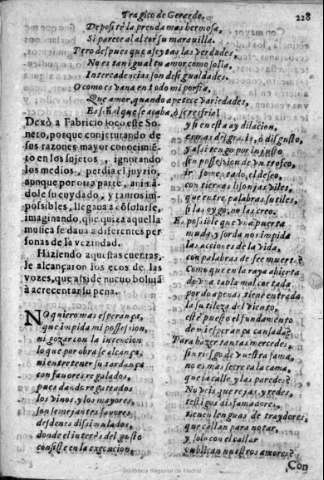 Tragico de Gerardo. 228
Depositè la prenda mas hermosa,
Si parece al altar su maravilla.
Pero despues que a essas las verdades,
No es tan igual tu amor como solia,
Intercadencias son desigualdades.
O como es vana en todo mi porfia,
Que amor, quando apetece variedades,
Es señal que se acaba, ò se resfria
Dexò a Fabricio loco este So-
neto, porque conjeturando de
sus razones mayor conocimiē-
to en los sujetos, ignorando
los medios, perdia el juyzio,
aunque por otra parte,
dole su cuydado, y tantos im-
possibles, llegaua a consolarse,
imaginando, que quiza aquella
musica se daua a diferentes per
sonas de la vezindad.
Haziendo aquestas cuentas,
le alcançaron los ecos de las
vozes, que assi de nueuo boluiā
à acrecentar su pena.
No quiero mas esperança,
que impida mi possession,
ni gozar son la intencion
lo que por obra se alcança,
ni entretener su tardança
con fauores regalados,
pues dando
los vnos, y los mayores,
son semejantes fauores,
desdenes dissimulados,
donde el interès del gusto
consiste en la execucion,
y si en esta ay dilacion,
ò disgusto,
y assi tengo por injusto
su possession de vn trofeo,
el desseo,
con tiernas lisonjas viles,
que entre palabras sutiles,
si las oygo, no las creo.
Es possible que vna puerta
muda, y sorda nos impida
las acciones de la vida,
con palabras de fee muerta?
Como que en la raya abierta
de vna tabla mal cortada
por do apenas tiene entrada
la sutileza del viento,
estè puesto el fundamento
de mi esperança cansada?
Para hazer tantas mercedes,
sin riesgo de vuestra fama,
no es mas secreta la cama,
que la calle, y las paredes?
No veis que rejas, y redes,
testigos disfamadores,
tienen lenguas de traydores,
que callan para notar,
y solo con el callar
publican nuestros amores?
Con
Biblioteca Regional de Madrid